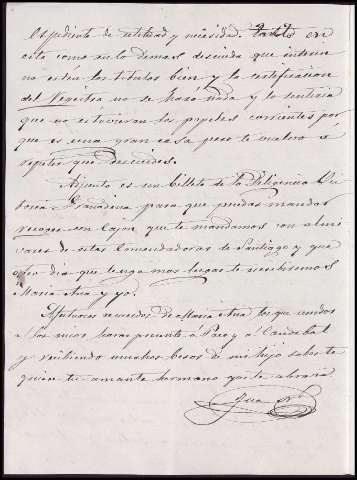 Espediente de utilidad y necesidad. Tanto en
esto como en lo demas descuida que interin
no esten los titulos bien y la certificacion
del Registro no se hará nada y lo sentiria
que no estuvieran los papeles corrientes por
que es una gran casa pero te vuelvo a
repetir que descuides.
Adjunto es un billete de la
Granadina para que puedas mandar
recoger un cajon que te mandamos con almi
vares de estas Comendadoras de Santiago y que
otro dia que tenga mas lugar te escribiremos
Maria Ana y yo.
Afectuosos recuerdos de Maria Ana los que unidos
a los mios haras presente á Paco y á
y recibiendo muchos besos de mi hijo sabes te
quiere tu amante hermano que te abraza
Juan